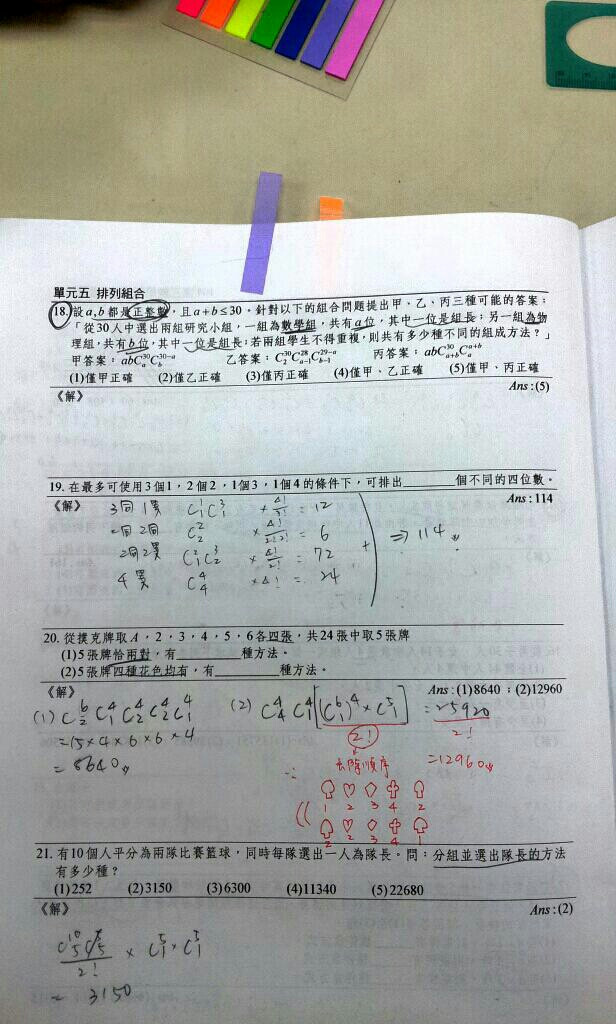 單元五 排列組合
18.設a,b都是正整數，且a+b≤30。針對以下的組合問題提出甲、乙、丙三種可能的答案：
「從30人中選出兩組研究小組，一組為數學組，共有a位，其中一位是組長；另一組為物
理組，共有b位，其中一位是組長；若兩組學生不得重複，則共有多少種不同的組成方法？」
甲答案：abC³⁰ₐC³⁰⁻ᵃ_b 乙答案：C³⁰₂C²⁸ₐ₋₁C²⁹⁻ᵃ_b₋₁ 丙答案：abC³⁰ₐ₊bCᵃ⁺ᵇₐ
(1)僅甲正確 (2)僅乙正確 (3)僅丙正確 (4)僅甲、乙正確 (5)僅甲、丙正確
《解》 Ans:(5)
19.在最多可使用3個1，2個2，1個3，1個4的條件下，可排出________個不同的四位數。
《解》 Ans:114
3同1異 C¹₁C³₁ ×4!/3! = 12
二同2同 C²₂ ×4!/2!2! = 6
2同2異 C²₁C³₂ ×4!/2! = 72
4異 C⁴₄ ×4! = 24
+ ⇒114
20.從撲克牌取A，2，3，4，5，6各四張，共24張中取5張牌
(1)5張牌恰兩對，有________種方法。
(2)5張牌四種花色均有，有________種方法。
《解》 Ans:(1)8640；(2)12960
(1) C⁶₂ C⁴₁ C⁴₂ C⁴₂ C⁴₁
=15×4×6×6×4
=8640
(2) C⁴₄ C⁴₁ [(C⁶₁)⁴×C⁵₁] / 2! = 25920 / 2!
=12960
去除順序
♤ ♡ ♢ ♧ ♤
1 2 3 4 2
♤ ♡ ♢ ♧ ♤
2 2 3 4 1
21.有10個人平分為兩隊比賽籃球，同時每隊選出一人為隊長。問：分組並選出隊長的方法
有多少種？
(1)252 (2)3150 (3)6300 (4)11340 (5)22680
《解》 Ans:(2)
C¹⁰₅C⁵₅ / 2! × C⁵₁×C⁵₁
= 3150